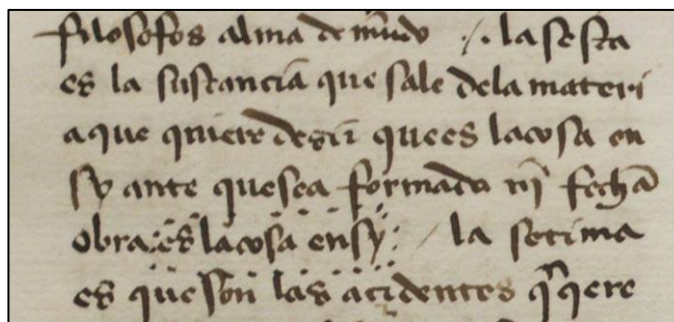 filosofos alma de mũdo .,. la sesta
es la sustançia que sale dela materi
a que quiere dezir que es la cosa en
sy ante que sea formada nj̃ fecha
obra: es la cosa en sy: / la setima
es que son las açidentes q̃ q̃ere